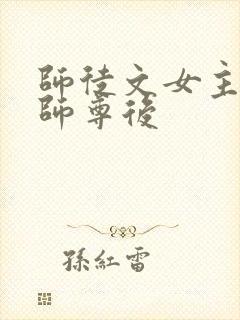 師徒文女主
師尊後
孫紅雷